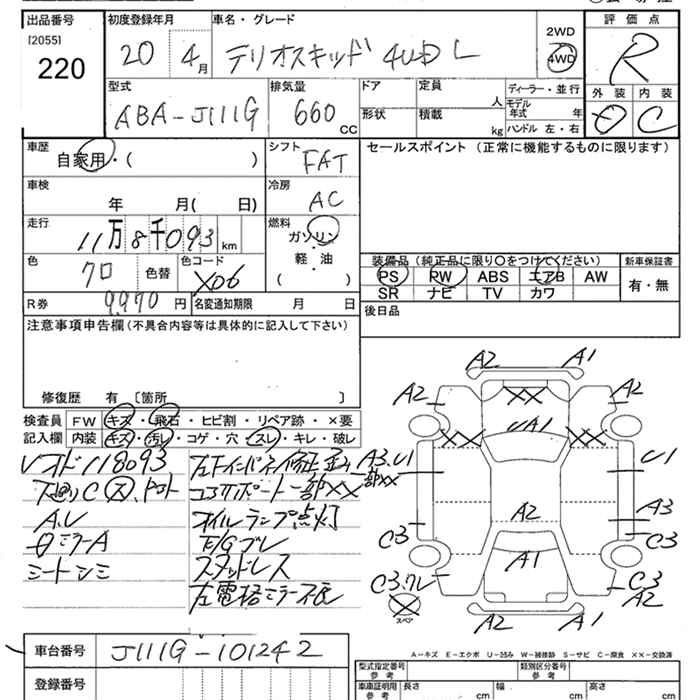 出品番号 初度登録年月 車名・グレード 2WD 評価点
[2055]
220 20 4月 テリオスキッド 4WD L 4WD R
型式 排気量 ドア 定員 ディーラー・並行 外装 内装
ABA-J111G 660 cc 人 モデル年式 年 C
形状 積載 kg ハンドル 左・右
車歴 シフト セールスポイント (正常に機能するものに限ります)
自家用・( ) FAT
車検 冷房
年 月( 日) AC
走行 燃料
11万8千093 km ガソリン
・
色 色コード 軽・油
クロ 色替 X06 ( )
装備品 (純正品に限り○をつけてください) 新車保証書
PS PW ABS エアB AW 有・無
SR ナビ TV カワ
R券 9,970 円 名変通知期限 月 日
後日品
注意事項申告欄 (不具合内容等は具体的に記入して下さい)
修復歴 有 [箇所 ]
検査員 FW キズ・飛石・ヒビ割・リペア跡・×要
記入欄 内装 キズ・汚レ・コゲ・穴・スレ・キレ・破レ
118093
下廻りC
A.U
ミラーA
シートシミ
コアサポート一部XX
オイルランプ点灯
E/Gブレ
スタッドレス
左電格ミラー不良
A2 A1
A2 XX A2
A1
XX XX
A3.U1 U1
一部XX
A2 A3
C3 C3
A1
C3 C3
A2
スペア A2 A1
A-キズ E-エクボ U-凹み W-補修跡 S-サビ C-腐食 XX-交換済
車台番号 J111G-101242
登録番号
型式指定番号 参考 類別区分番号 参考
車車証明用 参考 長さ cm 幅 cm 高さ cm